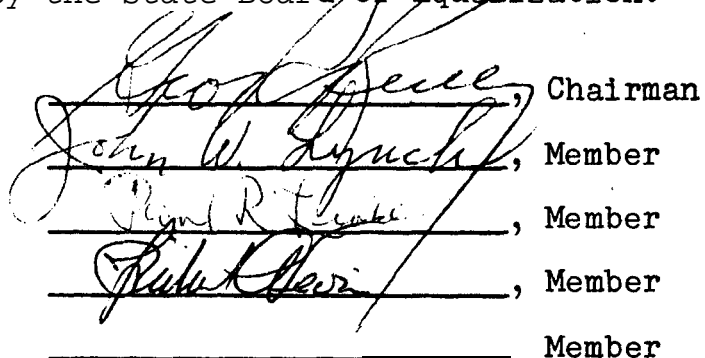 by the State Board of Equalization.
Geo R Reilly, Chairman
John W. Lynch, Member
R. , Member
, Member
Member